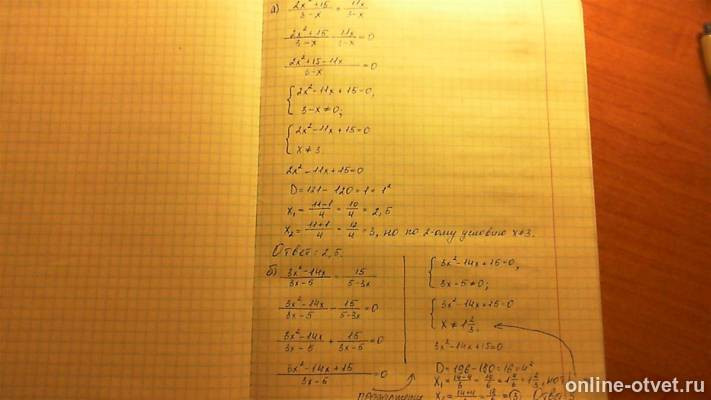 а) (2x²+15)/(3-x) = 11x/(3-x)
(2x²+15)/(3-x) - 11x/(3-x) = 0
(2x²+15-11x)/(3-x) = 0
{ 2x²-11x+15=0,
3-x≠0;
{ 2x²-11x+15=0
x≠3
2x²-11x+15=0
D=121-120=1=1²
x₁ = (11-1)/4 = 10/4 = 2,5
x₂ = (11+1)/4 = 12/4 = 3, но по 2-ому условию x≠3.
Ответ: 2,5.
б) (3x²-14x)/(3x-5) = 15/(5-3x)
(3x²-14x)/(3x-5) - 15/(5-3x) = 0
(3x²-14x)/(3x-5) + 15/(3x-5) = 0
(3x²-14x+15)/(3x-5) = 0
{ 3x²-14x+15=0,
3x-5≠0;
{ 3x²-14x+15=0
x≠1 2/3.
3x²-14x+15=0
D=196-180=16=4²
x₁ = (14-4)/6 = 10/6 = 1 4/6 = 1 2/3, но
x₂ = (14+4)/6 = 18/6 = 3
Ответ: 3
online-otvet.ru